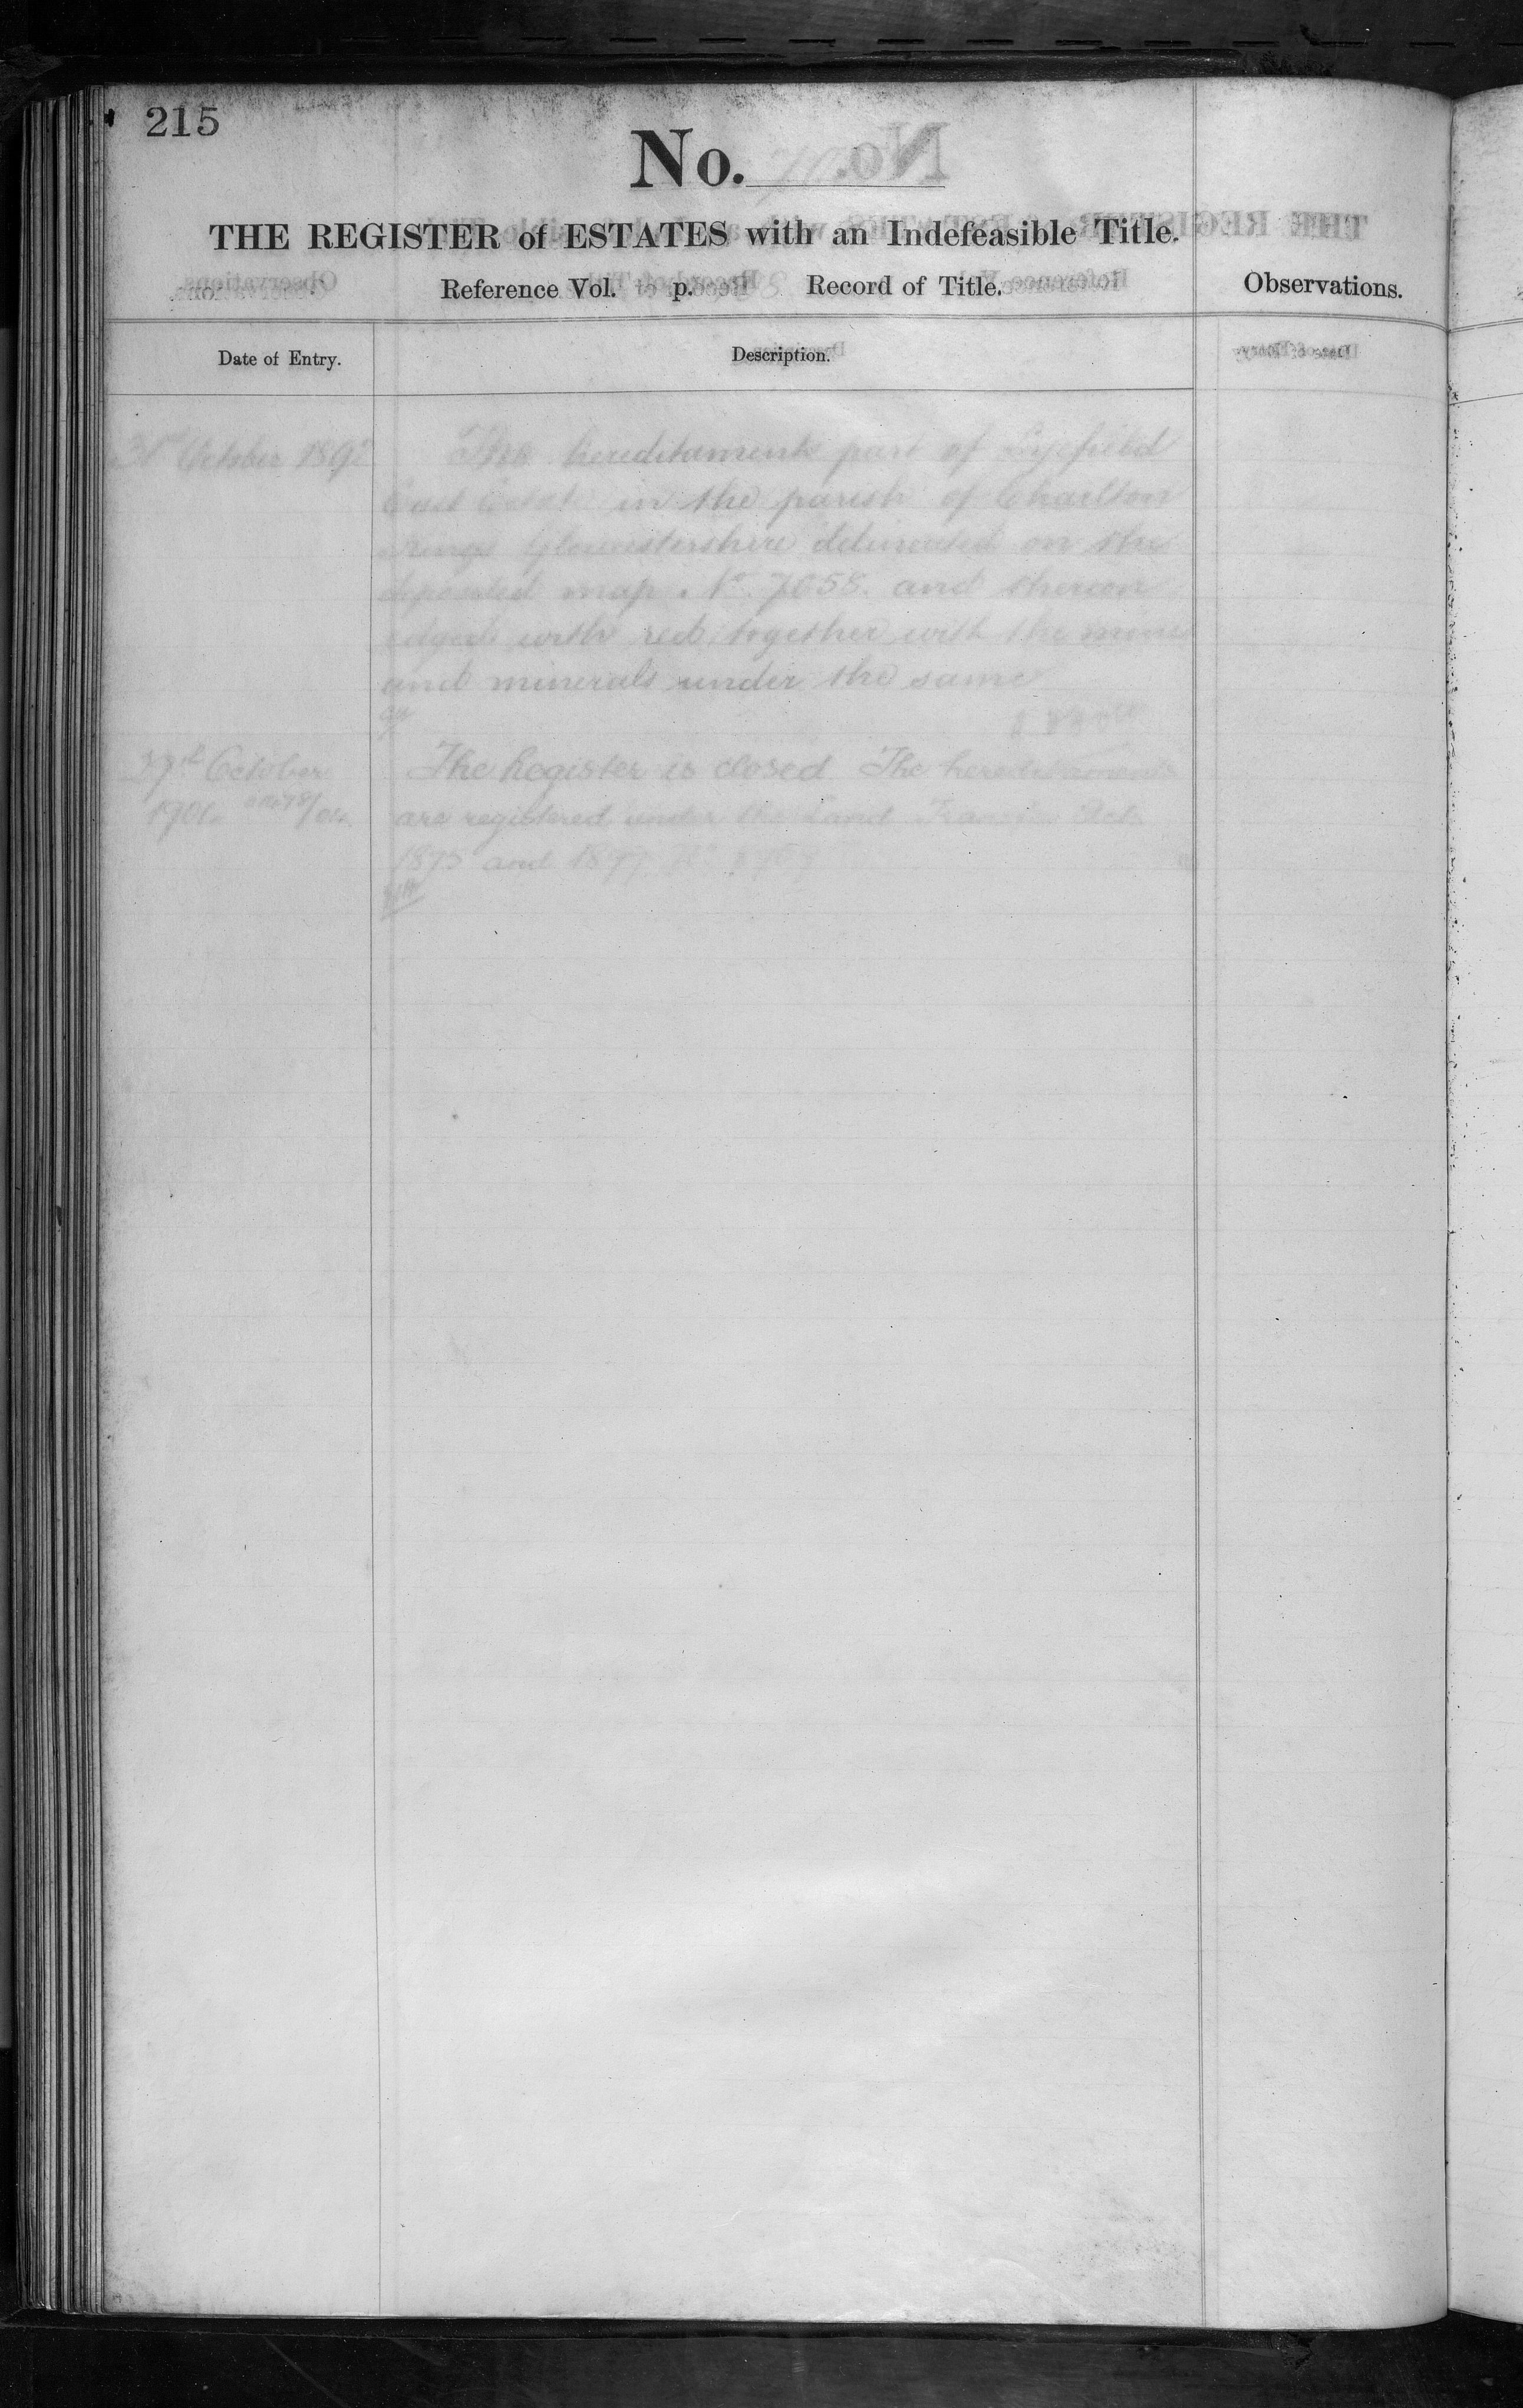 215
No.
THE REGISTER of ESTATES with an Indefeasible Title.
Reference Vol. p. Record of Title. Observations.
Date of Entry. Description.
October 189 The hereditaments part of Lyefield
East Estate in the parish of Charlton
Kings Gloucestershire delineated on the
deposited map No. 7658. and thereon
edged with red together with the mines
and minerals under the same
October The Register is closed The hereditaments
are registered under the Land Transfer Acts
1875 and 1897 No.